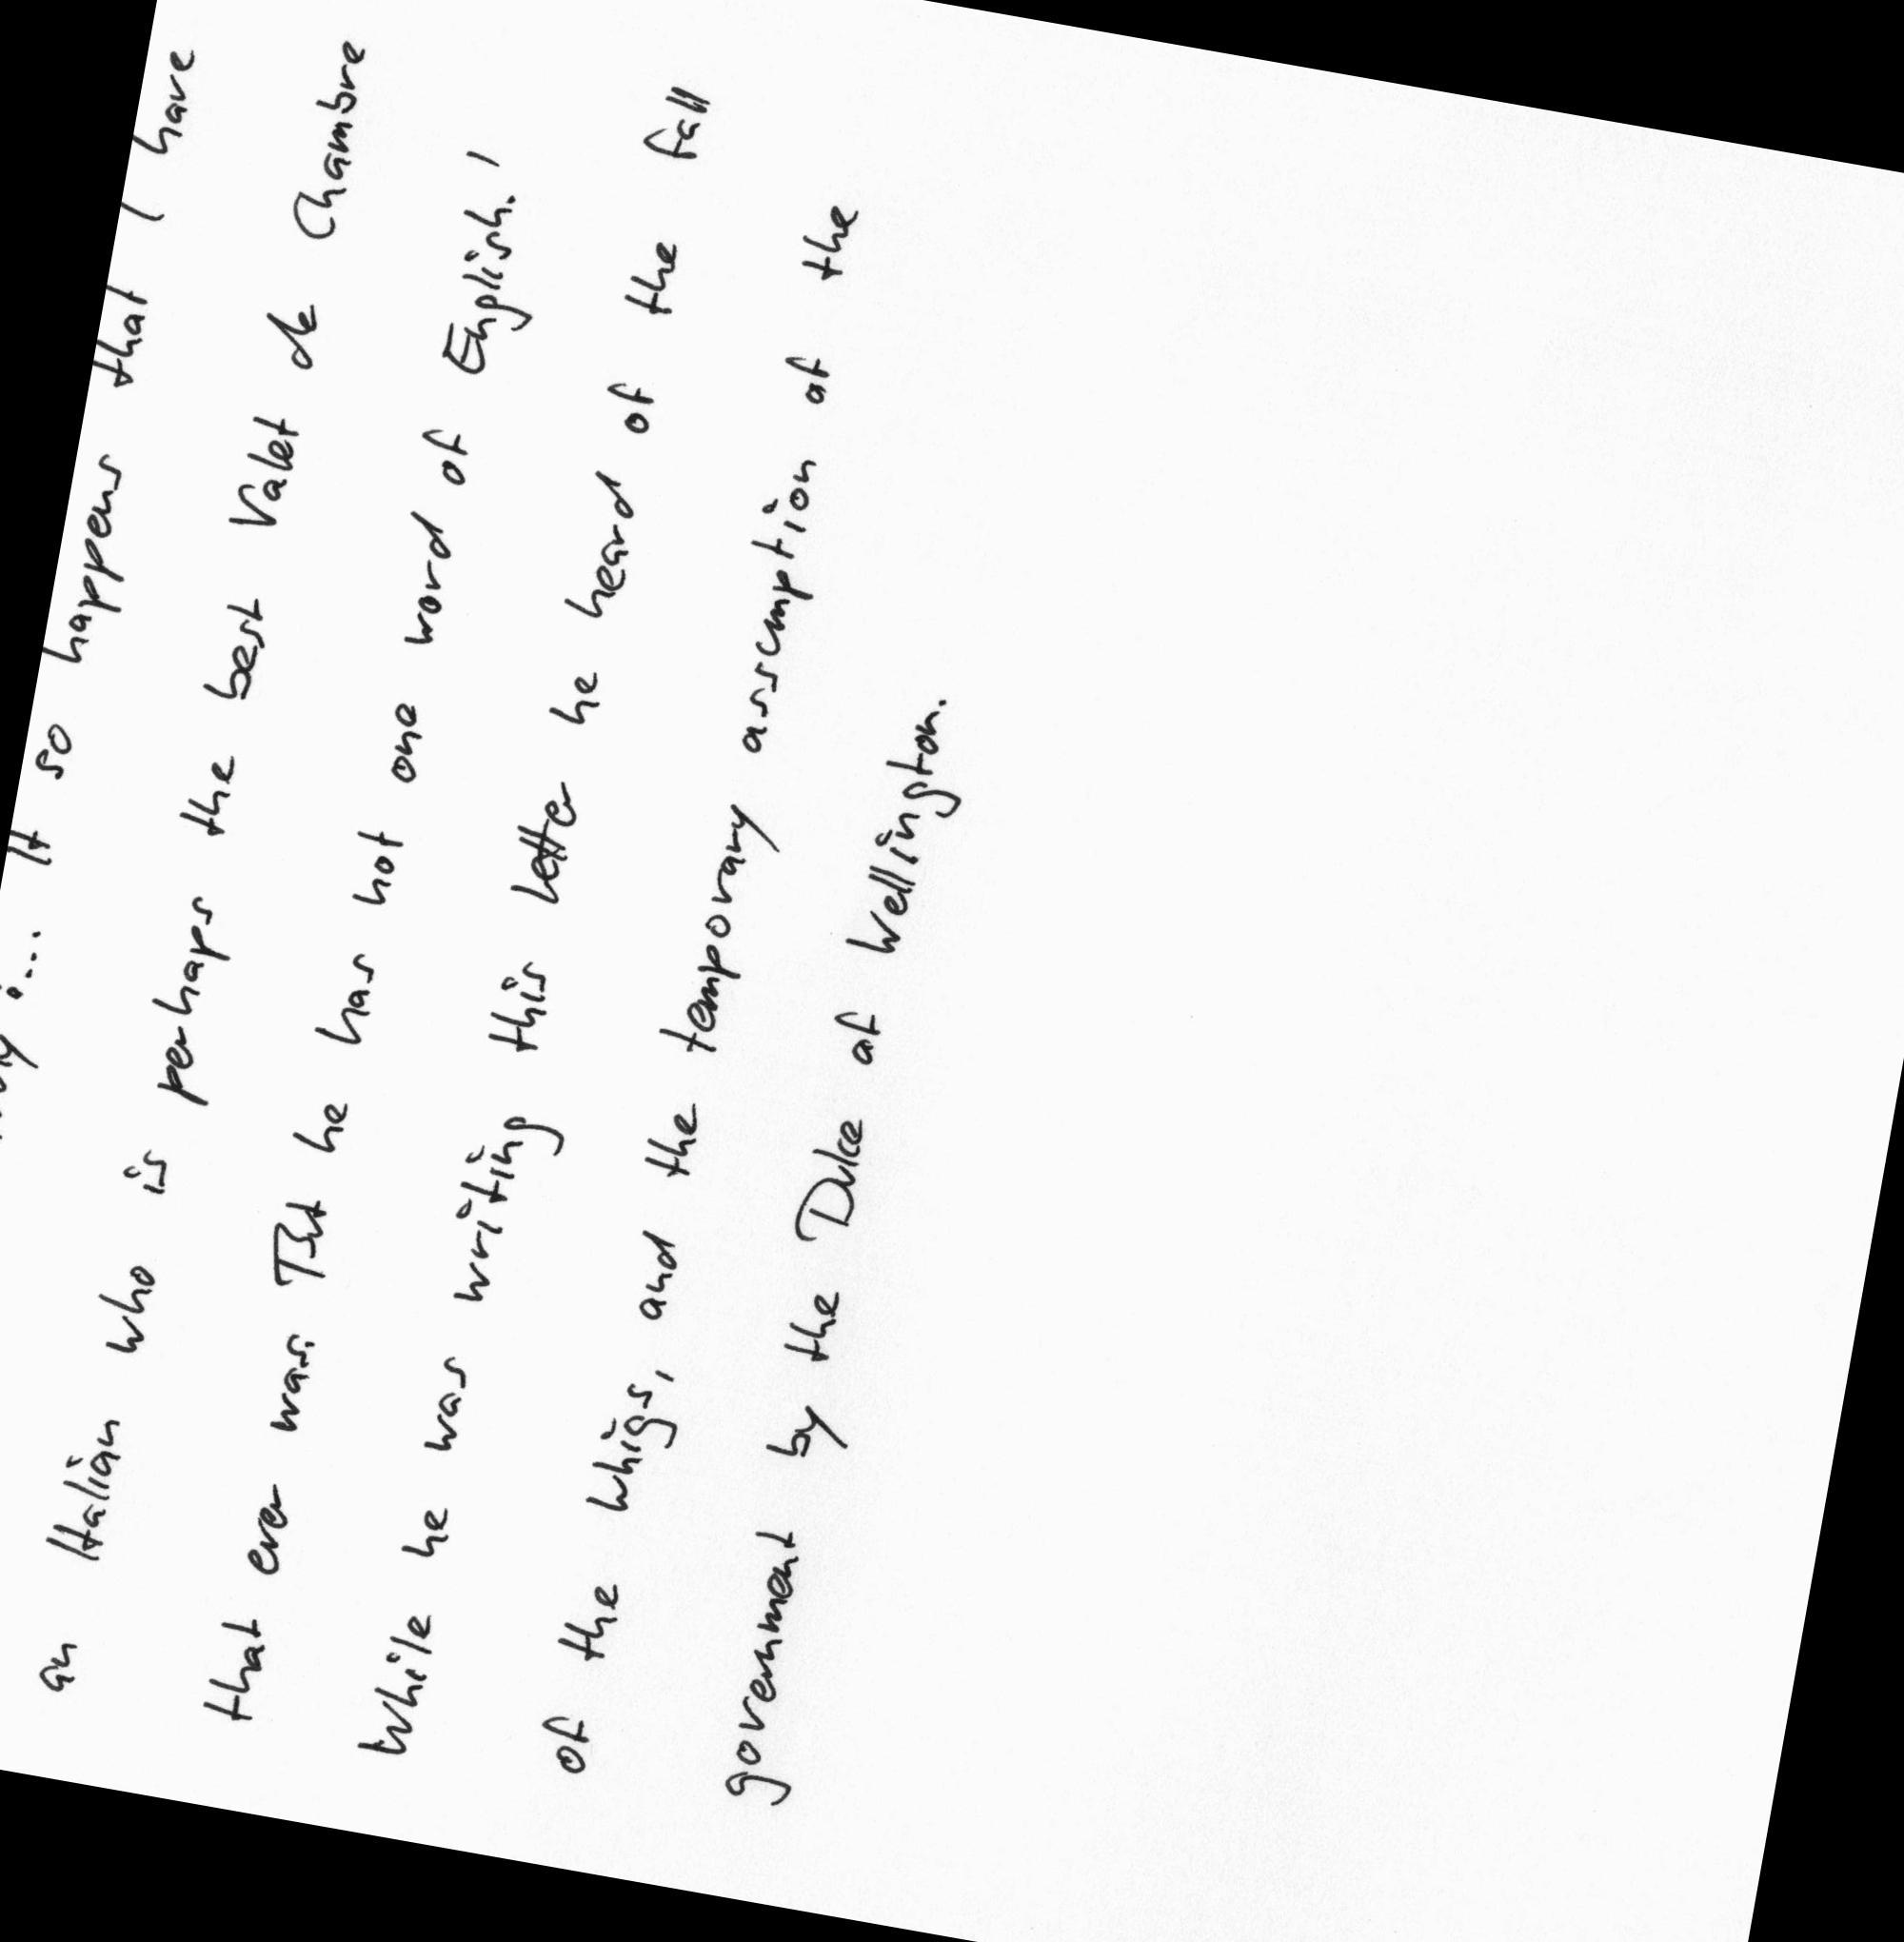 ... It so happens that I have
an Italian who is perhaps the best Valet de Chambre
that ever was. But he has not one word of English.'
While he was writing this letter he heard of the fall
of the Whigs, and the temporary assumption of the
government by the Duke of Wellington.